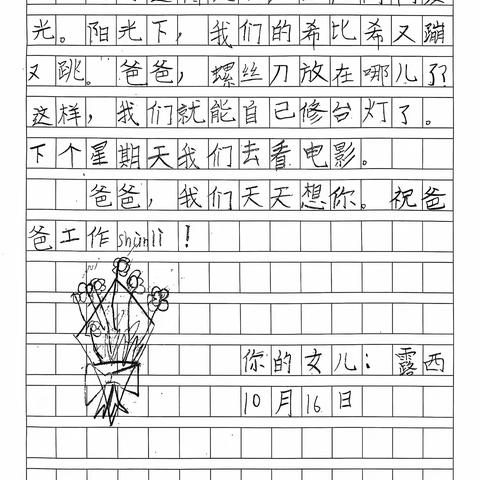 光。阳光下，我们的希比希又蹦
又跳。爸爸，螺丝刀放在哪儿了？
这样，我们就能自己修台灯了。
下个星期天我们去看电影。
爸爸，我们天天想你。祝爸
爸工作shùnlì！
你的女儿：露西
10月16日